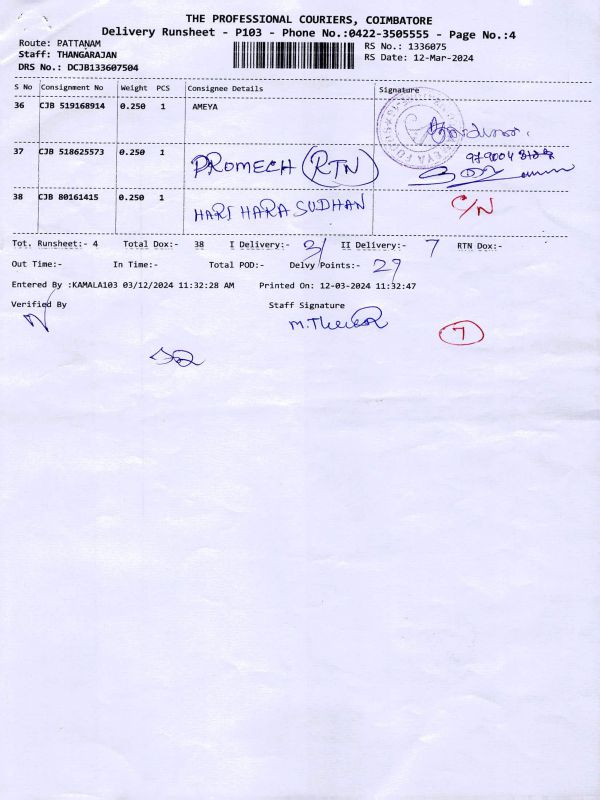 THE PROFESSIONAL COURIERS, COIMBATORE
Delivery Runsheet - P103 - Phone No.:0422-3505555 - Page No.:4
Route: PATTANAM
RS No.: 1336075
Staff: THANGARAJAN
RS Date: 12-Mar-2024
DRS No.: DCJB133607504
S No Consignment No Weight PCS Consignee Details Signature
36 CJB 519168914 0.250 1 AMEYA
37 CJB 518625573 0.250 1 PROMECH (RTN)
38 CJB 80161415 0.250 1 HARI HARA SUDHAN C/N
Tot. Runsheet:- 4 Total Dox:- 38 I Delivery:- 31 II Delivery:- 7 RTN Dox:-
Out Time:- In Time:- Total POD:- Delvy Points:- 29
Entered By :KAMALA103 03/12/2024 11:32:28 AM Printed On: 12-03-2024 11:32:47
Verified By Staff Signature
7